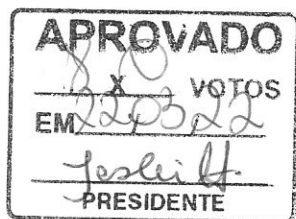 APROVADO
8 X 0 VOTOS
EM 22,03,22
PRESIDENTE